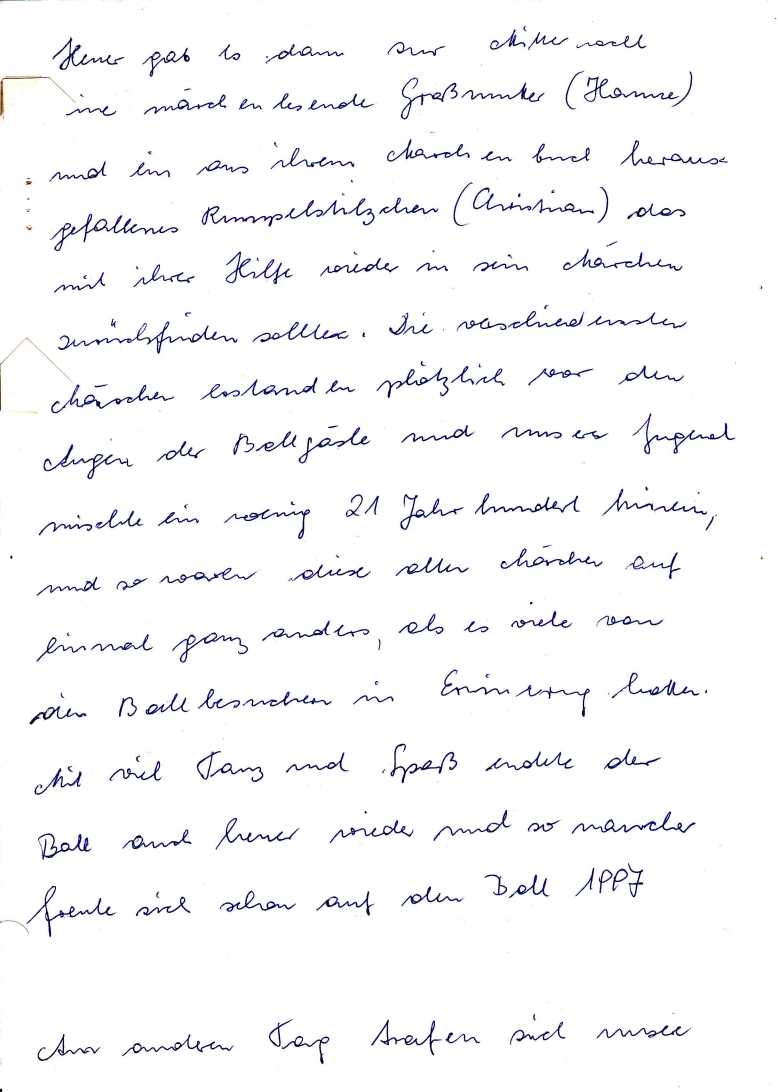 Heuer gab es dann zur Mitternacht
eine märchenlesende Großmutter (Hanne)
und ein aus ihrem Märchenbuch heraus-
gefallenes Rumpelstilzchen (Christian) das
mit ihrer Hilfe wieder in sein Märchen
zurückfinden sollte. Die verschiedensten
Märchen entstanden plötzlich vor den
Augen der Ballgäste und unsere Jugend
mischte ein wenig 21 Jahrhundert hinein,
und so waren diese alten Märchen auf
einmal ganz anders, als es viele von
den Ballbesuchern in Erinnerung hatten.
Mit viel Tanz und Spaß endete der
Ball auch heuer wieder und so mancher
freute sich schon auf den Ball 1997
Am anderen Tag trafen sich unsere